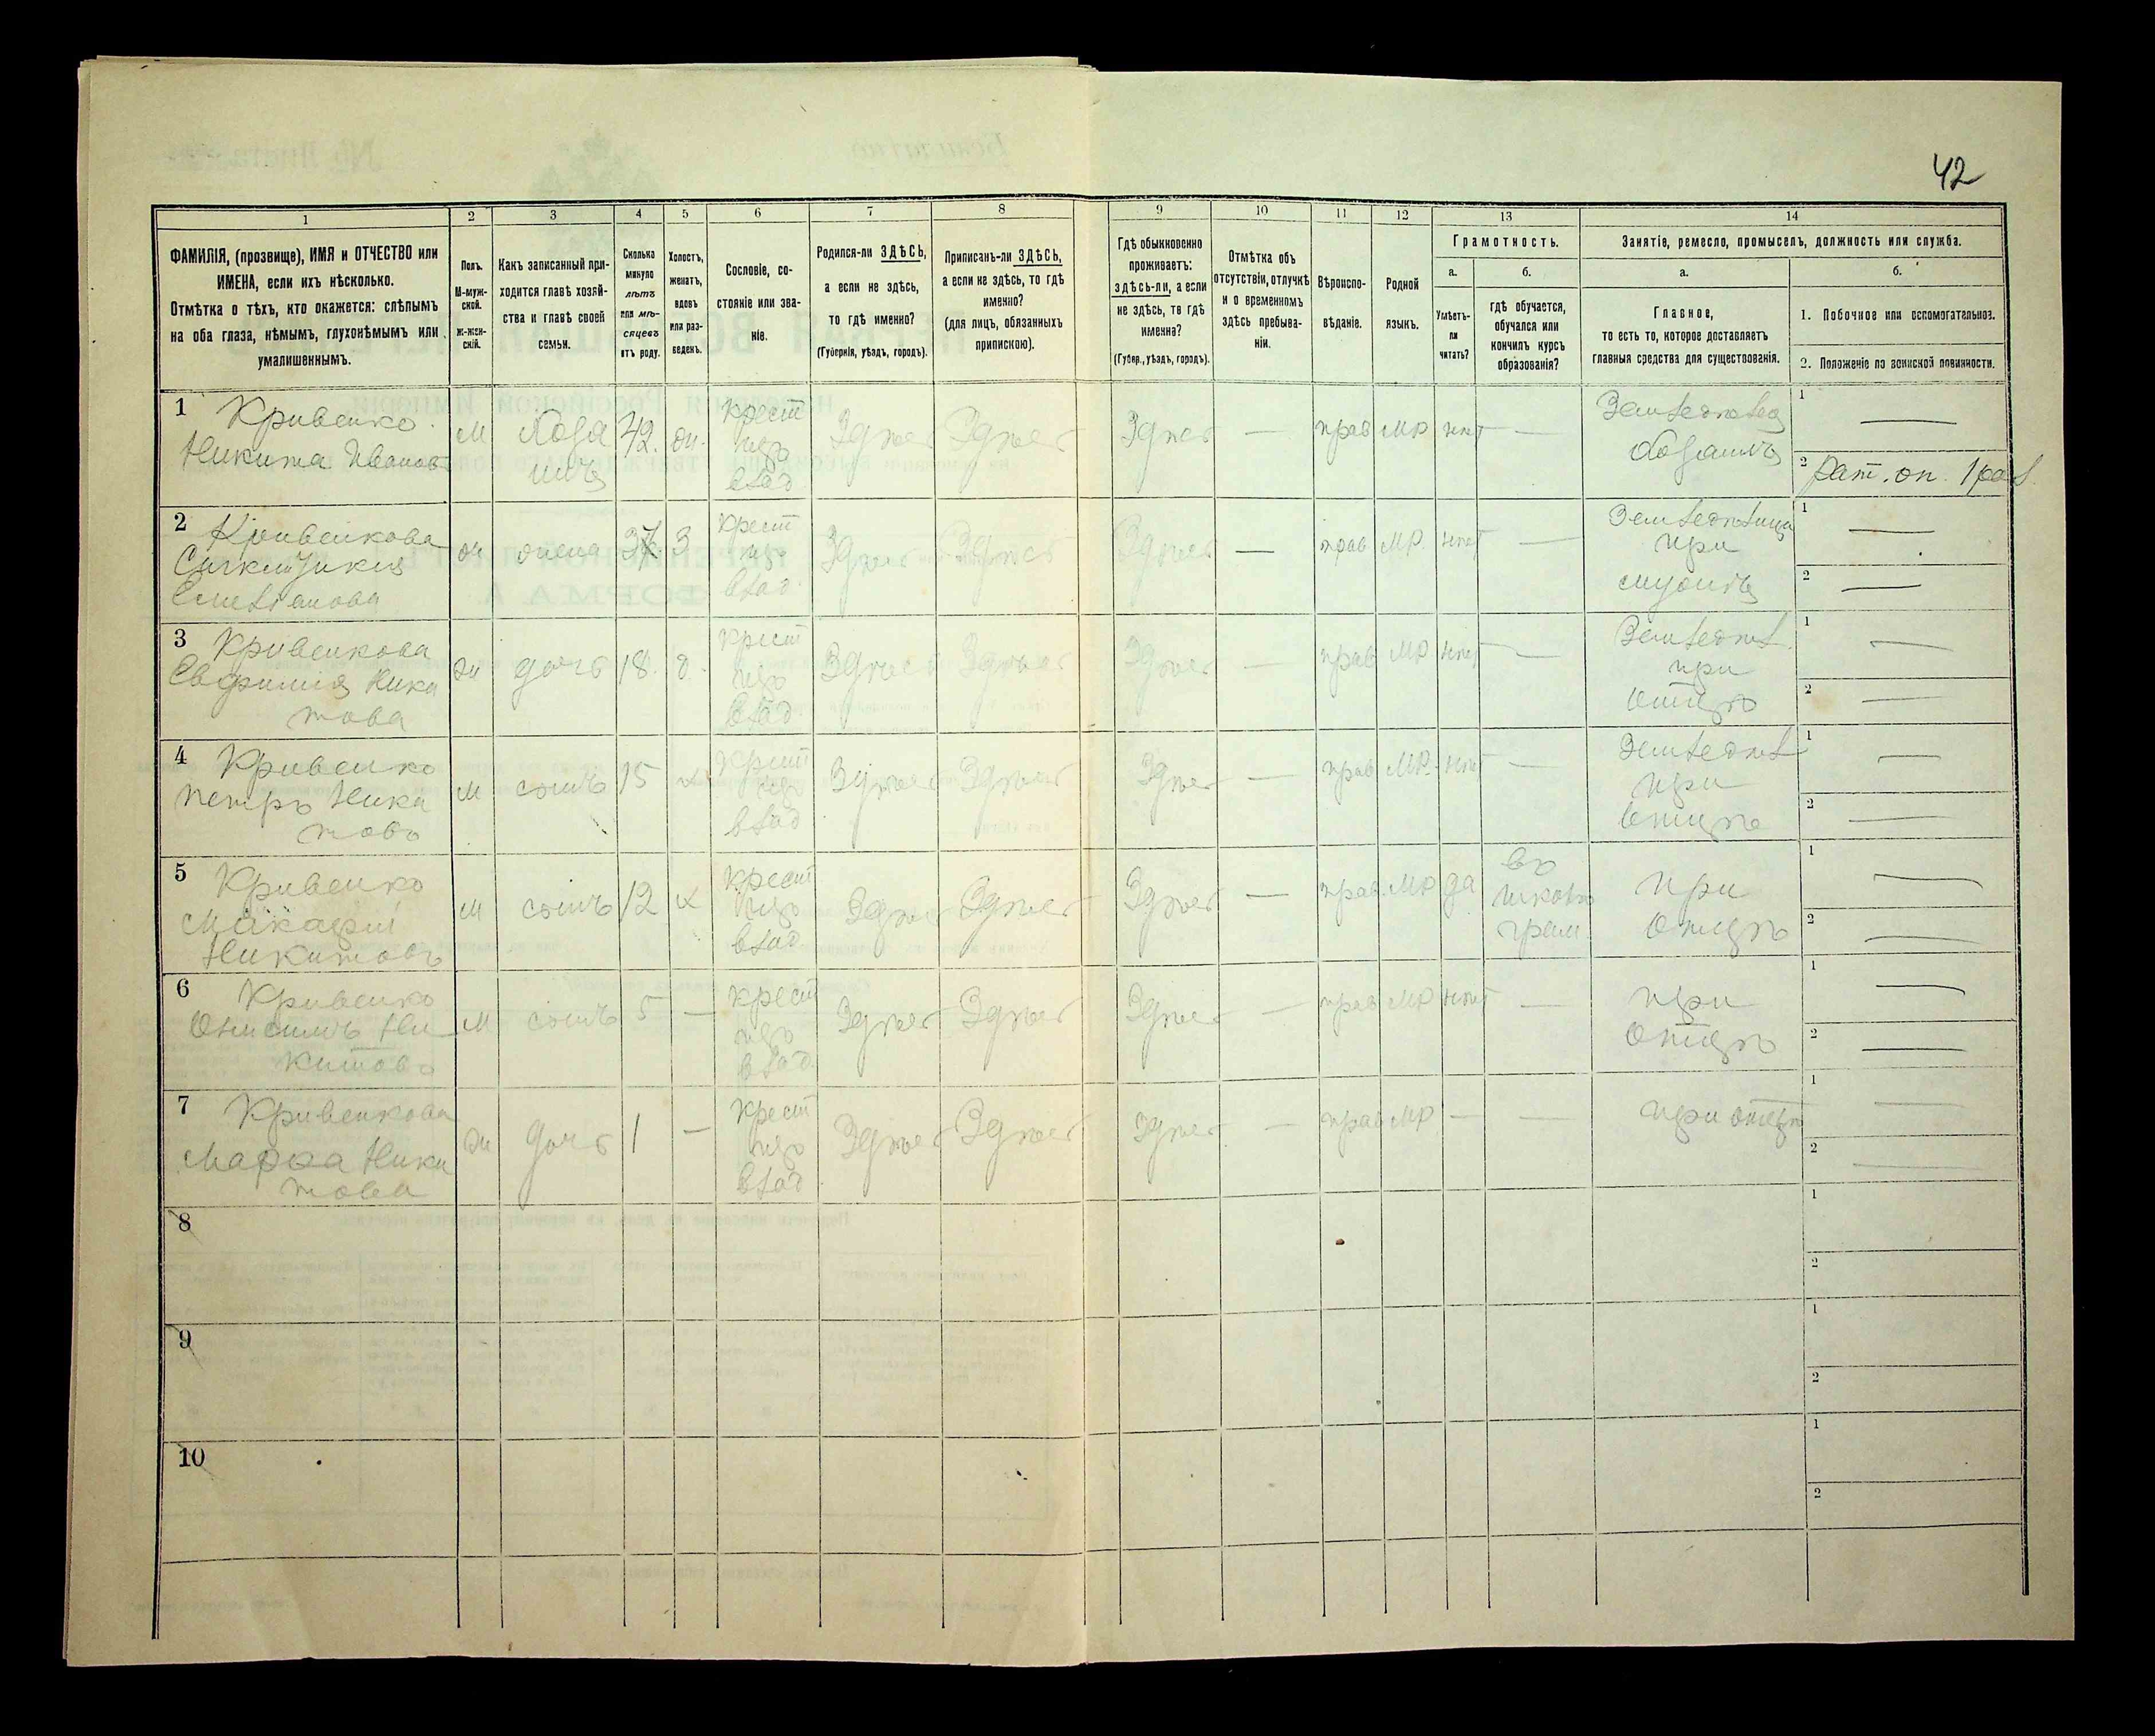 42
1 2 3 4 5 6 7 8 9 10 11 12 13 14
ФАМИЛІЯ, (прозвище), ИМЯ и ОТЧЕСТВО или
ИМЕНА, если ихъ нѣсколько.
Отмѣтка о тѣхъ, кто окажется: слѣпымъ
на оба глаза, нѣмымъ, глухонѣмымъ или
умалишеннымъ.
Полъ.
М-муж-
ской.
ж-жен-
скій.
Какъ записанный при-
ходится главѣ хозяй-
ства и главѣ своей
семьи.
Сколько
минуло
лѣтъ
или мѣ-
сяцевъ
отъ роду.
Холостъ,
женатъ,
вдовъ
или раз-
веденъ.
Сословіе, со-
стояніе или зва-
ніе.
Родился-ли ЗДѢСЬ,
а если не здѣсь,
то гдѣ именно?
(Губернія, уѣздъ, городъ).
Приписанъ-ли ЗДѢСЬ,
а если не здѣсь, то гдѣ
именно?
(для лицъ, обязанныхъ
припискою).
Гдѣ обыкновенно
проживаетъ:
здѣсь-ли, а если
не здѣсь, то гдѣ
именно?
(Губер., уѣздъ, городъ).
Отмѣтка объ
отсутствіи, отлучкѣ
и о временномъ
здѣсь пребыва-
ніи.
Вѣроиспо-
вѣданіе.
Родной
языкъ.
Грамотность.
а.
Умѣетъ-
ли
читать?
б.
гдѣ обучается,
обучался или
кончилъ курсъ
образованія?
Занятіе, ремесло, промыселъ, должность или служба.
а.
Главное,
то есть то, которое доставляетъ
главныя средства для существованія.
б.
1. Побочное или вспомогательное.
2. Положеніе по воинской повинности.
1 Кривенко
Никита Ивановъ
м
хозя
инъ
42.
ж.
крест
изъ
влад
Здѣсь Здѣсь Здѣсь — прав МР нѣт —
Земледѣлец
хозяинъ
1 —
2 Рат. оп. 1 раз.
2 Кривенкова
Емельянова
ж жена 37 З
крест
изъ
влад.
Здѣсь Здѣсь Здѣсь — прав МР. нѣт —
Земледѣлица
при
мужѣ
1 —
2 —
3 Кривенкова
Евфимія Ники
това
ж дочь 18. д.
крест
изъ
влад
Здѣсь Здѣсь Здѣсь — прав МР нѣт —
Земледѣл.
при
отцѣ
1 —
2 —
4 Кривенко
Петръ Ники
товъ
м сынъ 15 х
крест
изъ
влад
Здѣсь Здѣсь Здѣсь — прав МР. нѣт —
Земледѣл
при
отцѣ
1 —
2 —
5 Кривенко
Макарій
Никитовъ
м сынъ 12 х
крест
изъ
влад
Здѣсь Здѣсь Здѣсь — прав. МР да
въ
школѣ
грам.
при
отцѣ
1 —
2 —
6 Кривенко
Онисимъ Ни
китовъ
м сынъ 5 —
крест
изъ
влад.
Здѣсь Здѣсь Здѣсь — прав МР нѣт —
при
отцѣ
1 —
2 —
7 Кривенкова
Марѳа Ники
това
ж дочь 1 —
крест
изъ
влад
Здѣсь Здѣсь Здѣсь — прав МР — —
при отцѣ
1 —
2 —
8
1
2
9
1
2
10
1
2